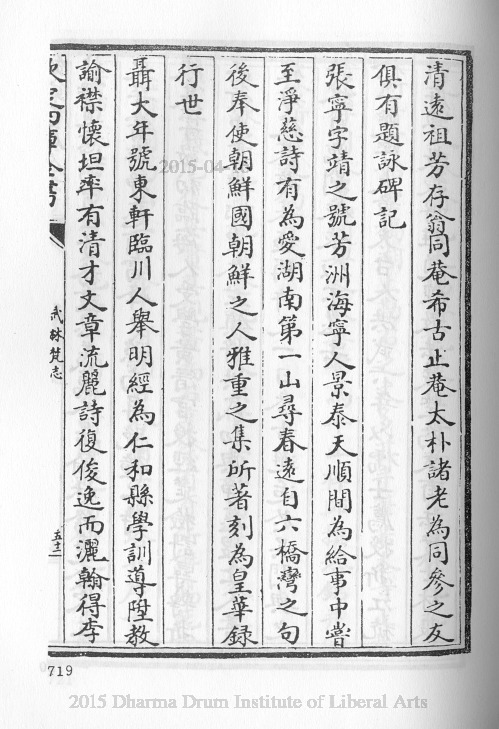 清遠祖芳存翁同菴希古止菴太朴諸老為同參之友
俱有題詠碑記
張寧字靖之號芳洲海寧人景泰天順間為給事中嘗
至淨慈詩有為愛湖南第一山尋春遠自六橋灣之句
後奉使朝鮮國朝鮮之人雅重之集所著刻為皇華録
行世
聶大年號東軒臨川人舉明經為仁和縣學訓導陞教
諭襟懷坦率有清才文章流麗詩復俊逸而灑翰得李
欽定四庫全書
武林梵志
五十二
2015-04-
719
2015 Dharma Drum Institute of Liberal Arts